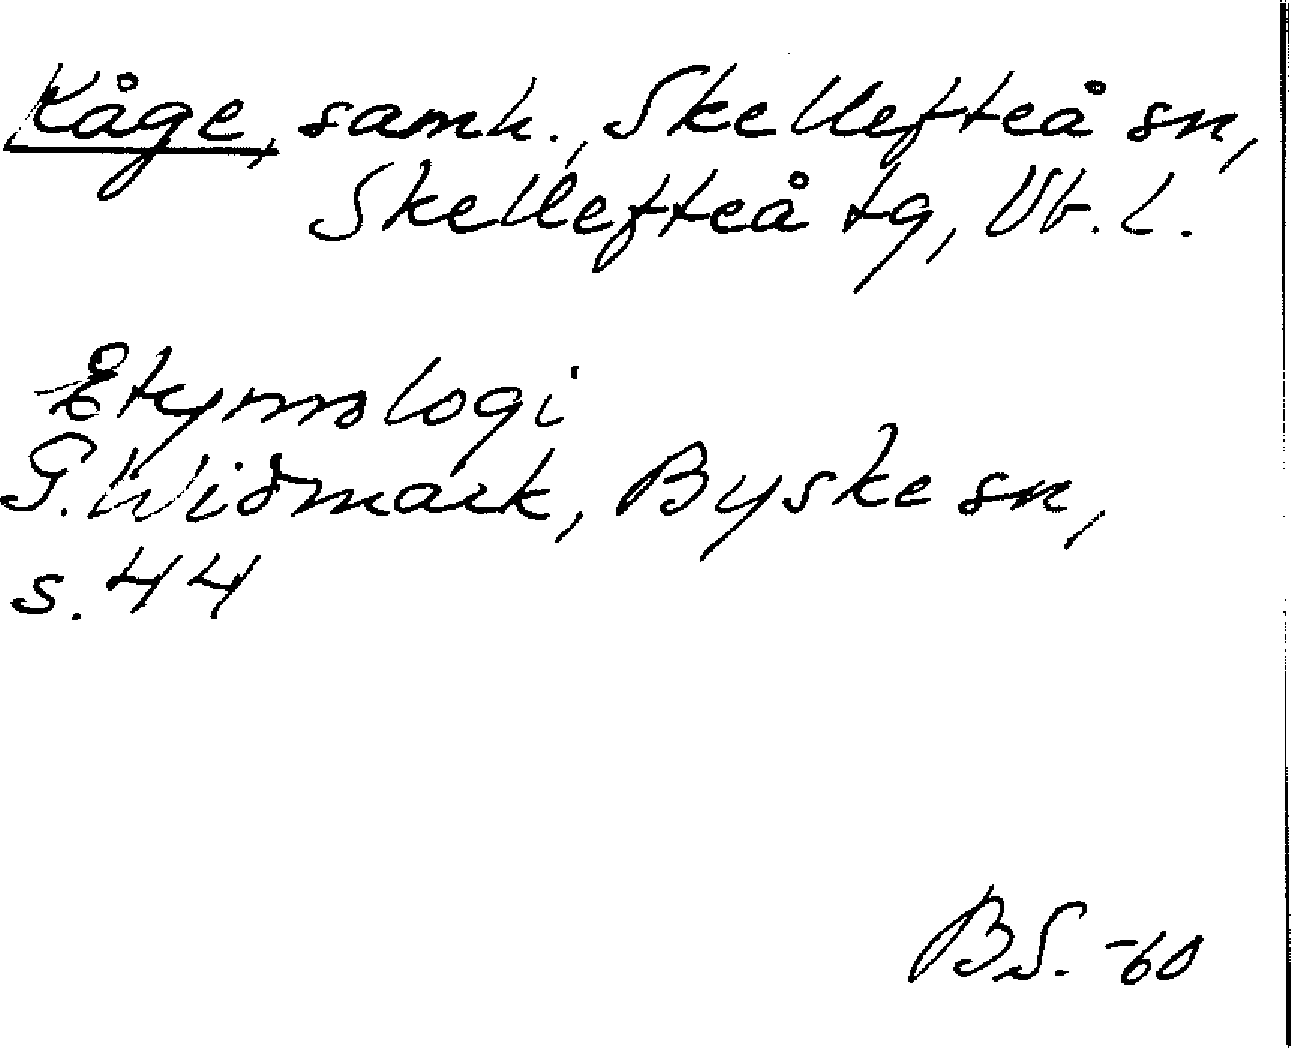 Kåge, samh., Skellefteå sn,
Skellefteå tg, Vb. l.
Etymologi
G. Widmark, Byske sn,
s. 44
BS. -60